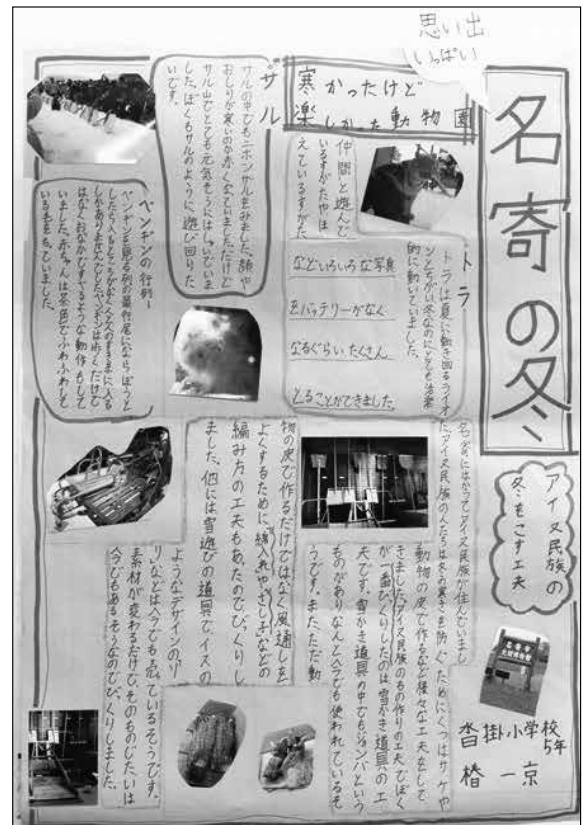 思い出
いっぱい
名寄の冬
寒かったけど
楽しかった動物園
トラ
トラは夏に動き回るライオ
ンとちがい冬なのにとても活発
的に動いていました。
仲間と遊んで
いるすがたやほ
えているすがた
などいろいろな写真
をバッテリーがなく
なるぐらいたくさん
とることができました。
サル
サルの中でもニホンザルをみました。顔や
おしりが寒いのか赤くなっていました。だけど
サル山でとても元気そうにはしっていま
した。ぼくもサルのように遊び回りた
いです。
ペンギンの行列
ペンギンを見る列の最後尾にならぼうと
したら入るところがなく人と人のすきまに入る
しかありませんでした。ペンギンは歩くだけで
はなくおなかですべるような動作もして
いました。赤ちゃんは茶色でふわふわして
いる毛をもっていました。
アイヌ民族の
冬をこす工夫
名寄にはかつてアイヌ民族が住んでいまし
た。アイヌ民族の人たちは冬の寒さを防ぐためにくつはサケや
動物の皮で作るなど様々な工夫をして
きました。アイヌ民族のもの作りの工夫でぼく
が一番びっくりしたのは雪かき道具の工
夫です。雪かき道具の中でもジョンバという
ものがありなんと今でも使われているそ
うです。また、ただ動
物の皮で作るだけではなく風通しを
よくするために、綿入れやさし子などの
編み方の工夫もあったのでびっくりし
ました。他には雪遊びの道具で、イスの
ようなデザインのソ
リなどは今でも売っているそうです。
素材が変わるだけで、そのものじたいは
今でもあるそうなのでびっくりしました。
沓掛小学校
5年
椿一京